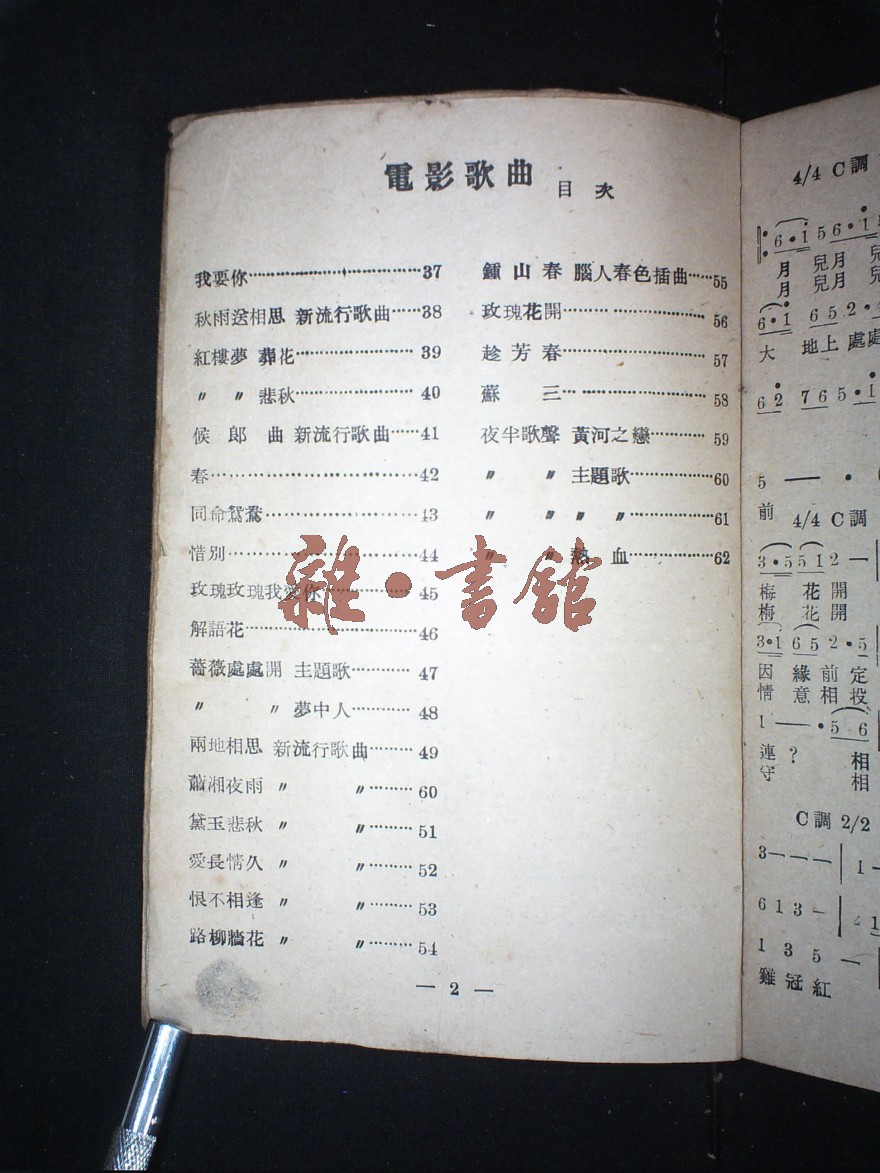 電影歌曲 目次
我要你……………………………37
秋雨送相思 新流行歌曲……38
紅樓夢 葬花……………………39
〃 〃 悲秋……………………40
候郎曲 新流行歌曲……41
春…………………………………42
同命鴛鴦…………………………43
惜別………………………………44
玫瑰玫瑰我愛你………………45
解語花……………………………46
薔薇處處開 主題歌…………47
〃 〃 夢中人…………48
兩地相思 新流行歌曲………49
蕭湘夜雨 〃 〃………60
黛玉悲秋 〃 〃………51
愛長情久 〃 〃………52
恨不相逢 〃 〃………53
路柳牆花 〃 〃………54
鍾山春 腦人春色插曲……55
玫瑰花開………………………56
趁芳春…………………………57
蘇三……………………………58
夜半歌聲 黃河之戀…………59
〃 〃 主題歌……………60
〃 〃 〃 〃……………61
〃 〃 熱血……………62
雜·書館
— 2 —
4/4 C調
6·1 5 6·1
月 兒月 兒
月 兒月 兒
6·1 6 5 2·
大 地上 處處
6 2 7 6 5·1
5 — ·
前
4/4 C調
3·5 5 1 2 —
梅 花 開
梅 花 開
3·1 6 5 2·5
因 緣 前 定
情 意 相 投
1 — ·5 6
連? 相
守 相
C調 2/2
3 — — — | 1 —
6 1 3 — |
1 3 5 —
雞 冠 紅